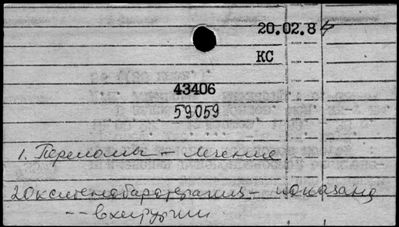 20.02.84
КС
43406
59059
1. Переломы – лечение
2 Оксигенобаротерапия – показания
-- в хирургии